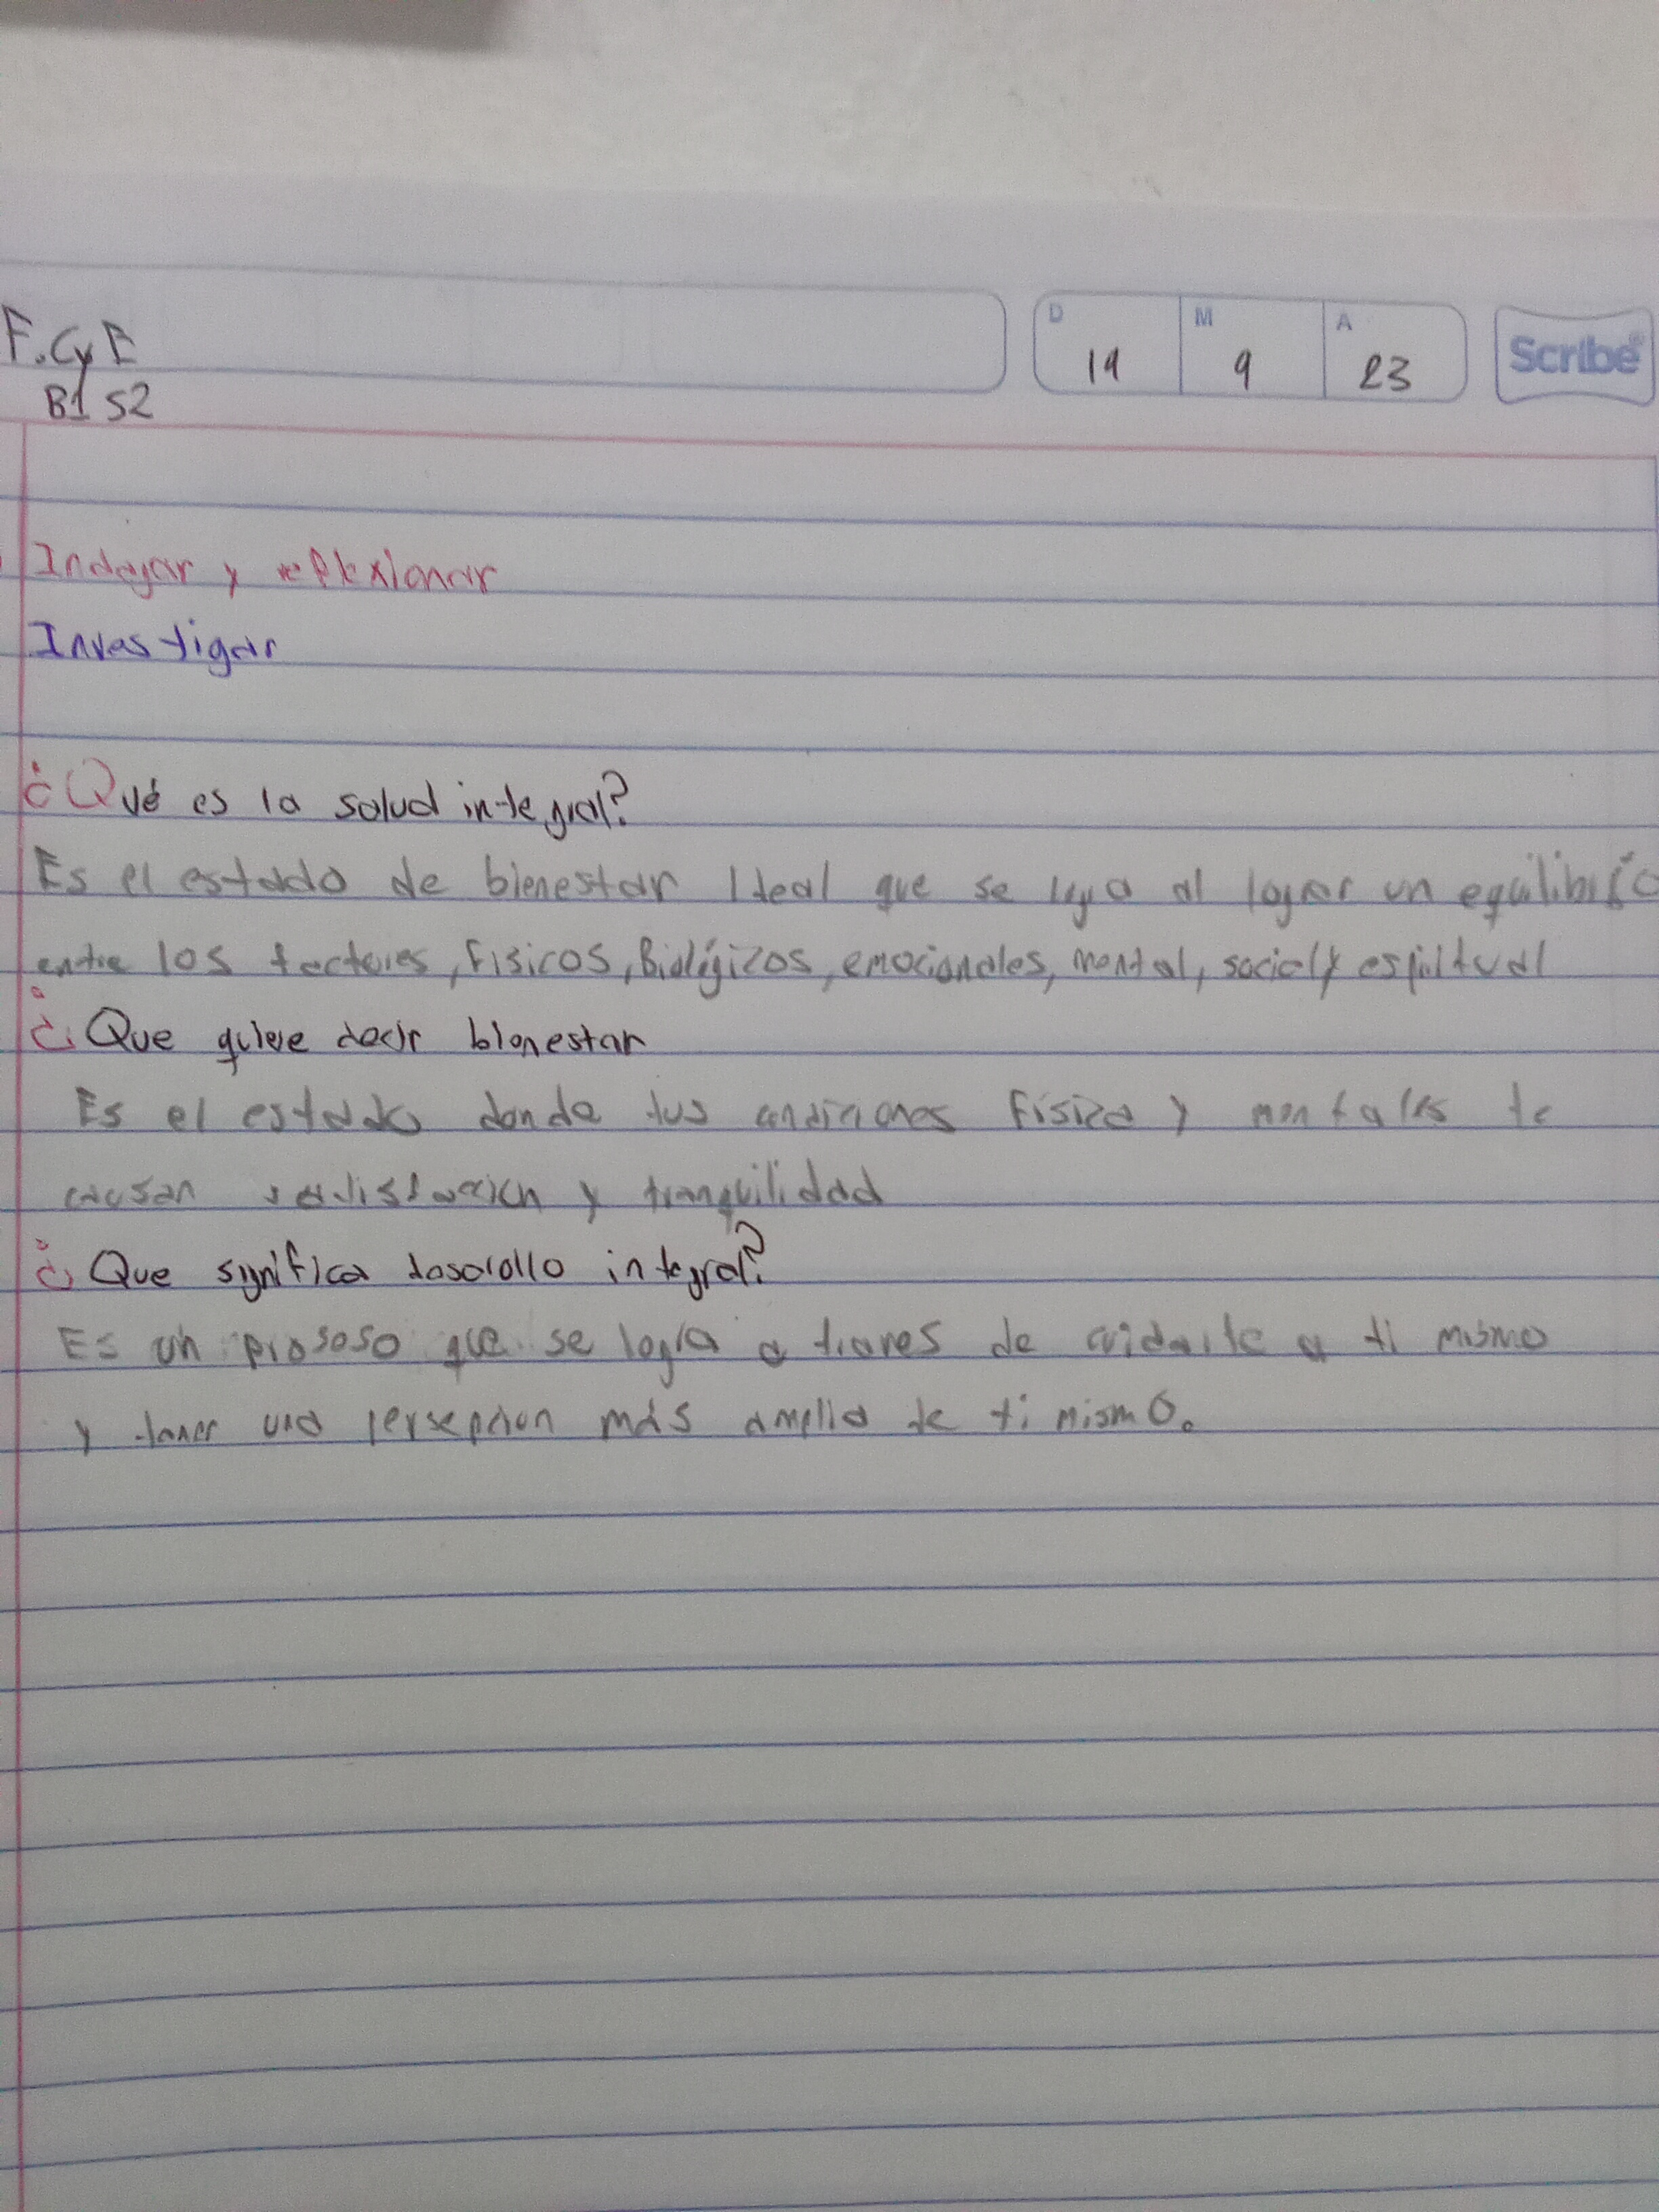 F.C y E
B1 S2
D 19 M 9 A 23
Scribe
Indagar y reflexionar
Investigar
¿Qué es la salud integral?
Es el estado de bienestar Ideal que se al lograr un equilibrio
entre los factores, Fisicos, Biológicos, emocionales, mental, social y espiritual
¿Que quiere decir bienestar
Es el estado donde tus condiciones Física y mentales te
causan satisfacción y tranquilidad
¿Que significa desarollo integral?
Es un prososo que se logra a traves de cuidarte a ti mismo
y tener una persepcion más amplia de ti mismo.